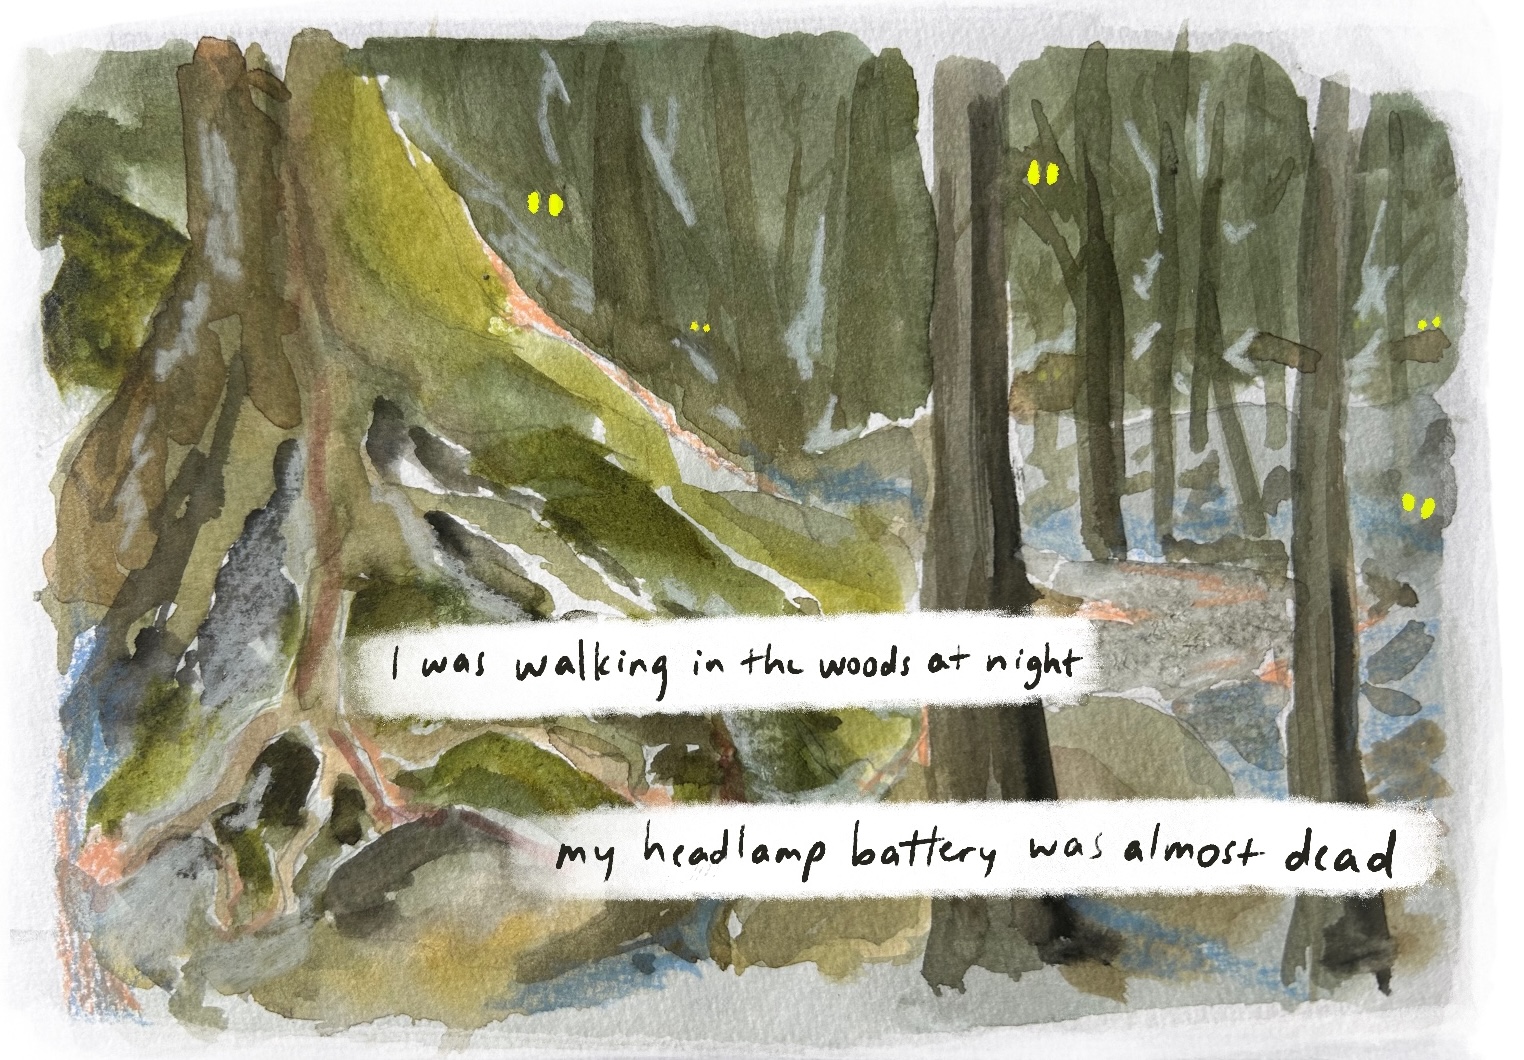 I was walking in the woods at night
my headlamp battery was almost dead